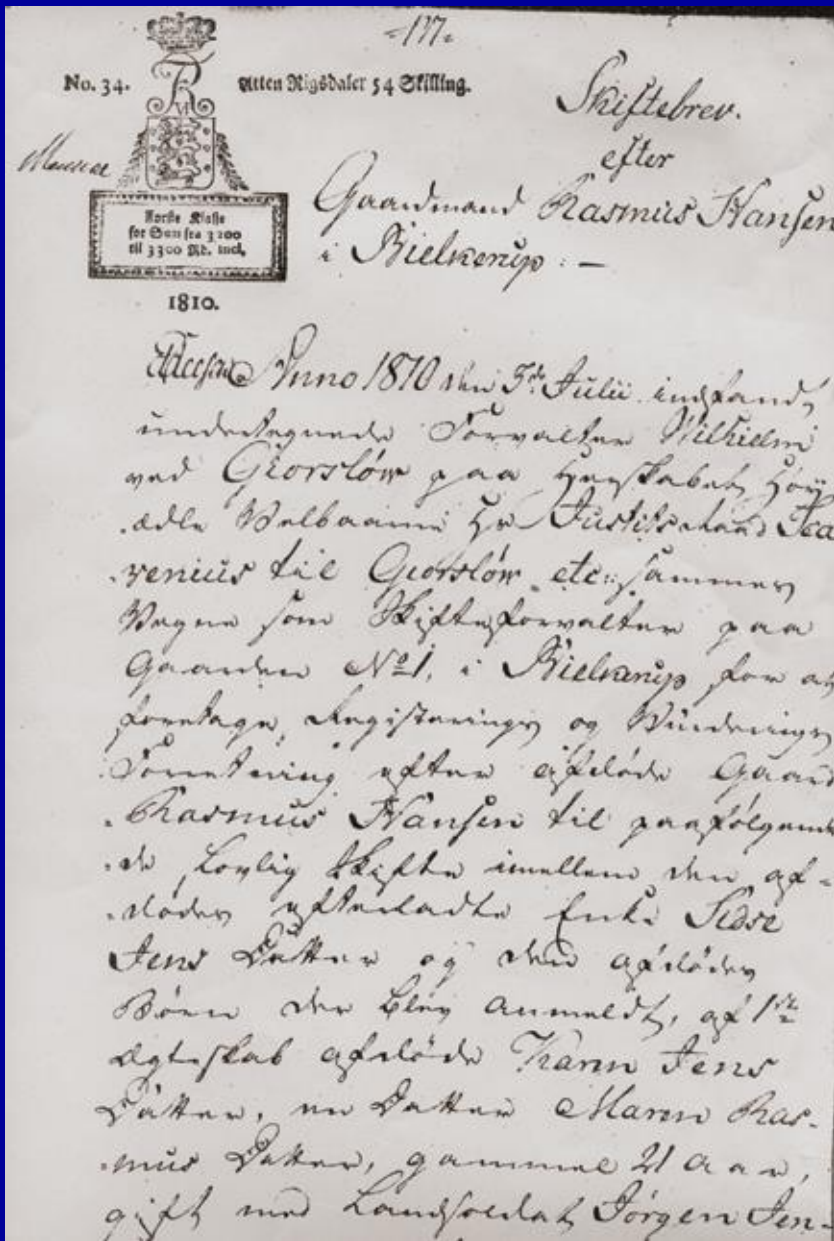 -177-
No. 34.
Atten Rigsdaler 54 Skilling.
Skiftebrev.
efter
Gaardmand Rasmus Hansen
i Bielkerup: —
Første Klasse
for Sum fra 3200
til 3300 Rd. incl.
1810.
Anno 1810 den 5te Julii indfandt
undertegnede Forvalter Wilhielmi
ved Giorslöw paa Herskabet Høy
ædle Velbaarne Hr Justitsraad Sca
venius til Giorslöw etc: sammes
Vegne som Skifteforvalter paa
Gaarden No 1. i Bielkerup for at
foretage Registerings og Vurderings
Forretning efter afdöde Gaard
Rasmus Hansen til paafølgende
de Lovlig Skifte imellem den af-
dödes efterladte Enke Sidse
Jens Datter og den afdödes
Börn der blev anmeldt, af 1ste
Ægteskab afdöde Karen Jens
Datter, en Datter Maren Ras-
mus Datter, gammel 21 Aar,
gift med Landsoldat Jörgen Jen-